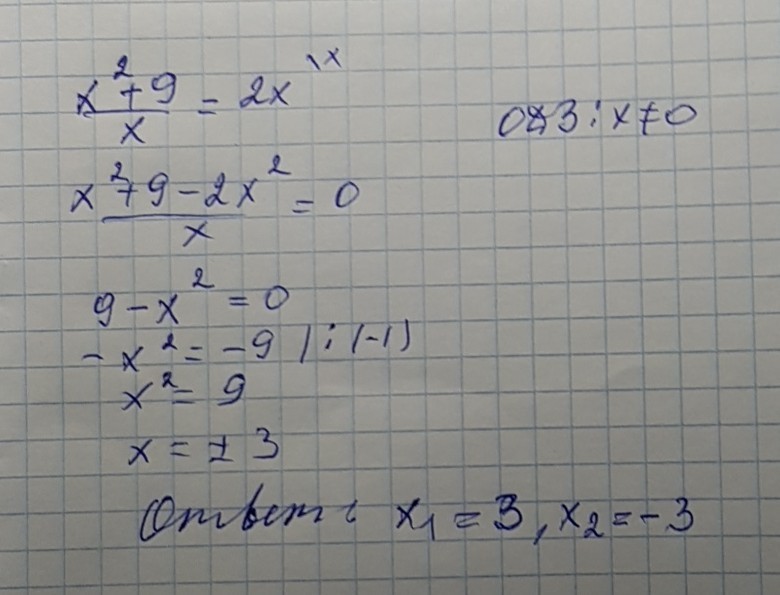 x²+9/x = 2x \x
ОДЗ: x≠0
x²+9-2x²/x = 0
9-x² = 0
-x² = -9 |:(-1)
x² = 9
x = ±3
Ответ: x₁ = 3, x₂ = -3